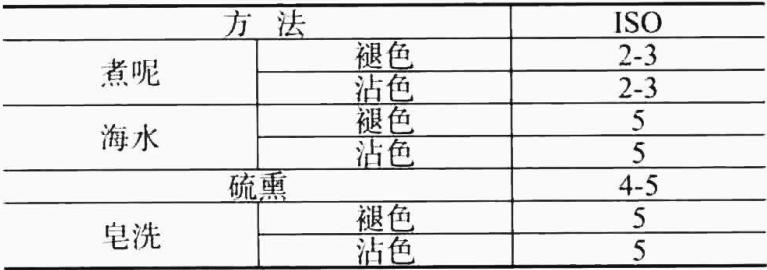 方法 ISO
煮呢 褪色 2-3
沾色 2-3
海水 褪色 5
沾色 5
硫熏 4-5
皂洗 褪色 5
沾色 5